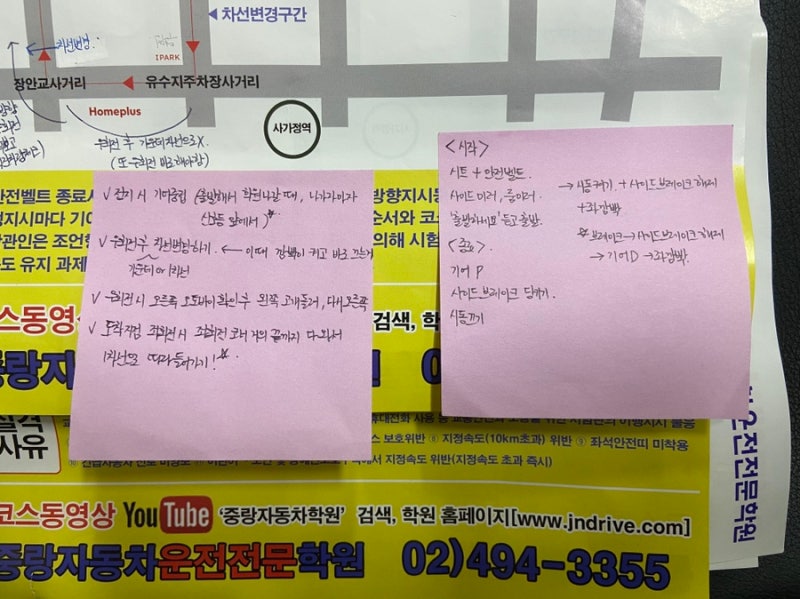 차선변경구간
차선변경.
IPARK
장안교사거리
유수지주차장사거리
Homeplus
사가정역
우회전 후 가운데차선으로X.
(또 우회전 바로해야함)
안전벨트 종료시
방향지시등
멍지시마다 기어
순서와 코스
관인은 조언형
의해 시험
도 유지 과제
코스동영상
검색, 학원
중랑자동차
✓ 정지 시 기어중립 (출발해서 학원나갈 때, 나가자마자
신호등 앞에서)
✓ 우회전후 차선변경하기. ← 이때 깜박이 키고 바로 끄는거
가운데 or 1차선
✓ 우회전 시 오른쪽 오토바이 확인 후 왼쪽 고개돌려, 다시 오른쪽
✓ 도착지점 좌회전시 좌회전 코너 거의 끝까지 다 와서
1차선으로 따라 들어가기!
<시작>
시트 + 안전벨트.
사이드미러, 룸미러.
'출발하세요' 듣고 출발.
→ 시동켜기. + 사이드브레이크 해제
+ 좌깜박
브레이크 → 사이드브레이크 해제
→ 기어D → 좌깜박.
<종료>
기어 P
사이드브레이크 당기기.
시동끄기
실격
사유
휴대전화 사용 등
스 보호위반 ⑧ 지정속도(10km초과) 위반 ⑨ 좌석안전띠 미착용
지정속도 위반(지정속도 초과 즉시)
코스동영상 YouTube '중랑자동차학원' 검색, 학원 홈페이지[www.jndrive.com]
중랑자동차운전전문학원 02)494-3355
운전전문학원